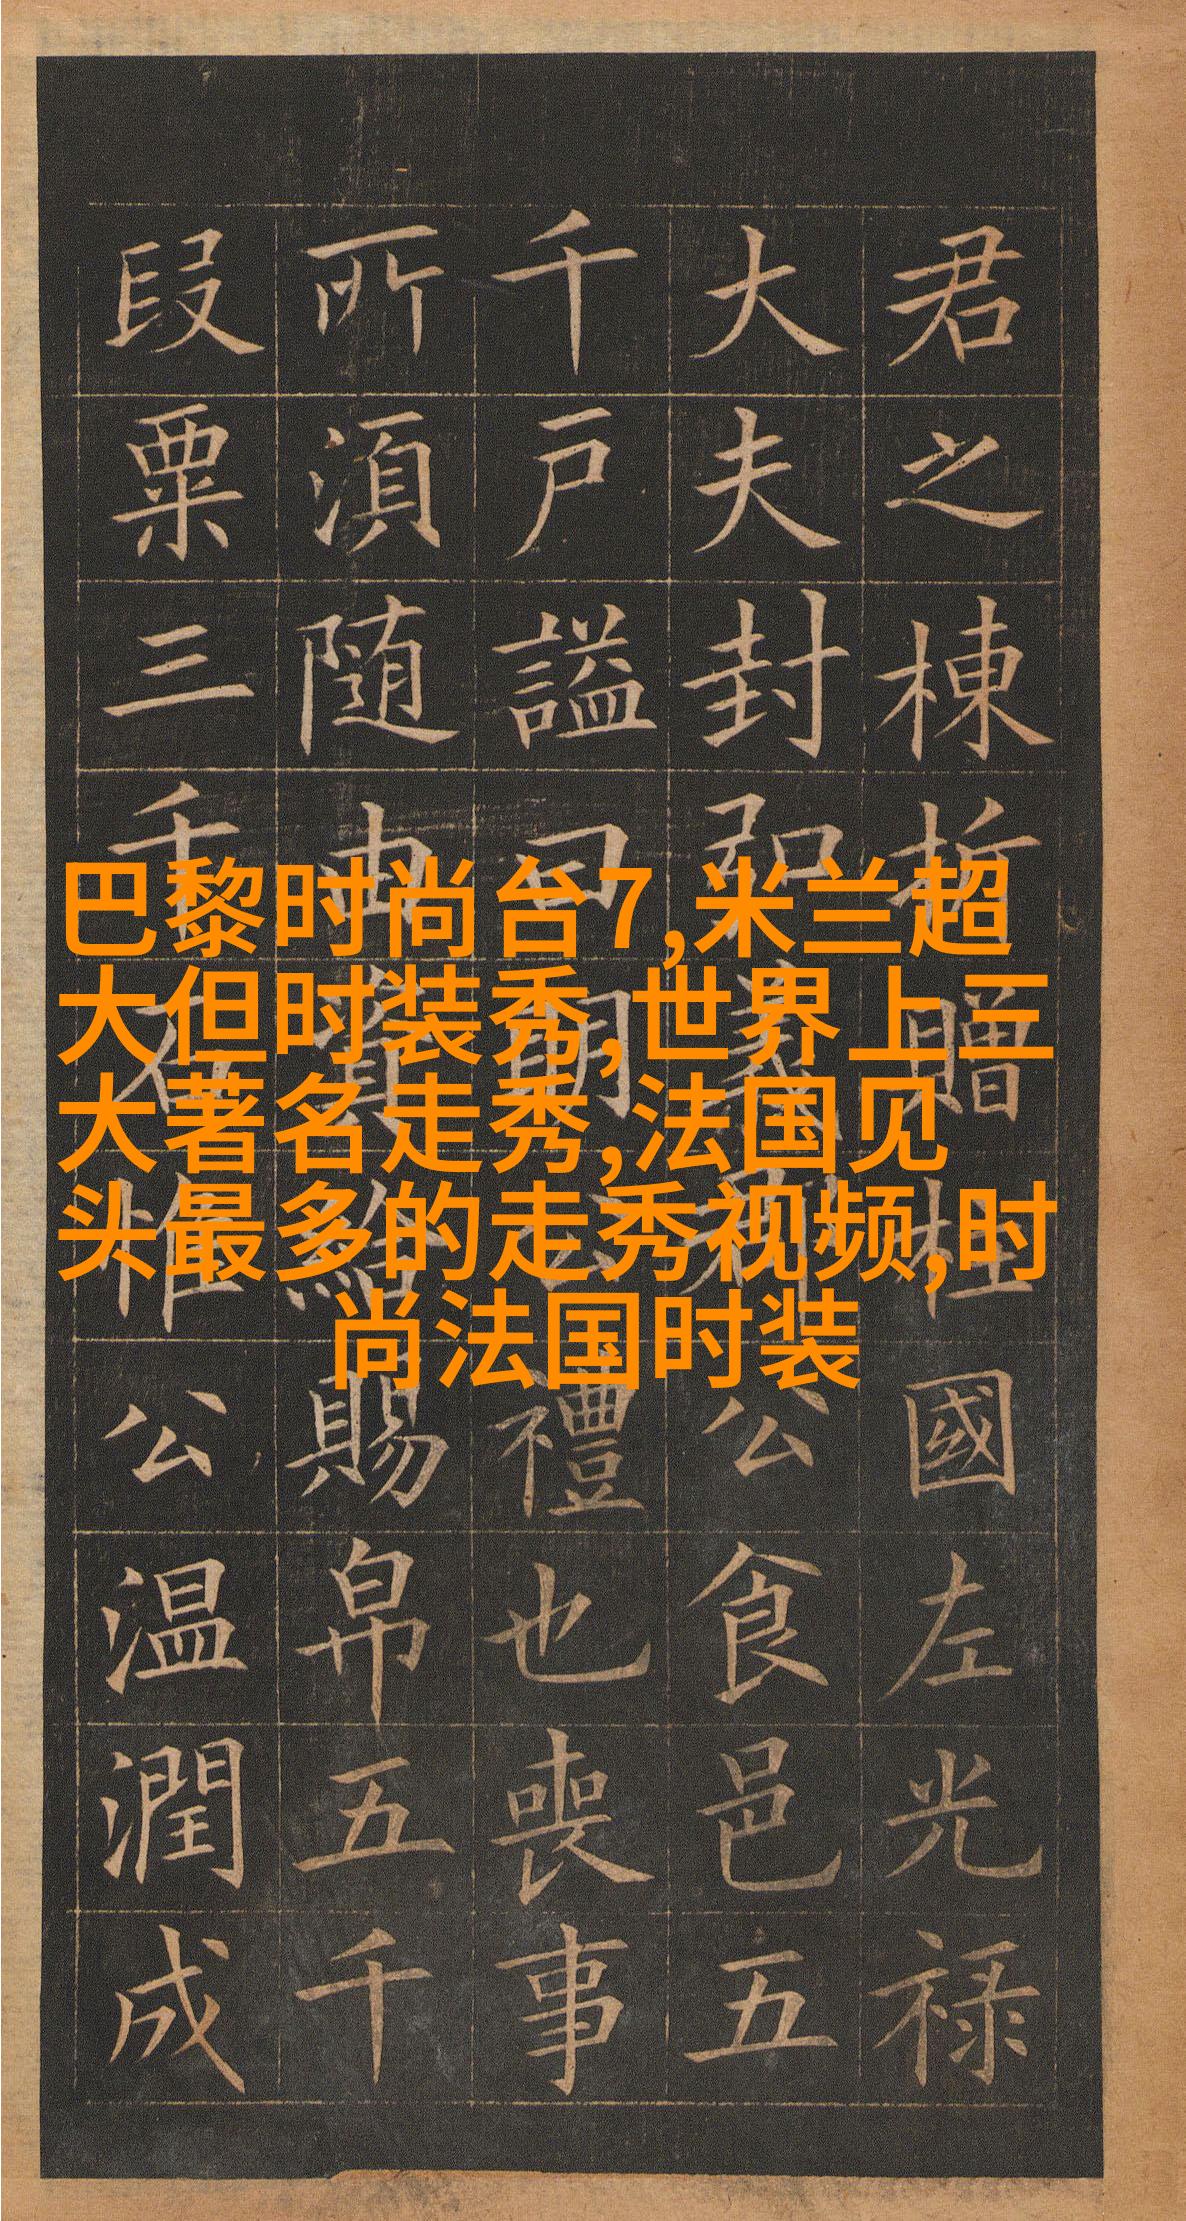 君之棟贈柱國左光禄
大夫封義公食邑五
千户謚曰禮也喪事
所湏随給賜帛五千
段粟三千石惟公温潤成
巴黎时尚台7,米兰超
大但时装秀,世界上三
大著名走秀,法国见
头最多的走秀视频,时
尚法国时装